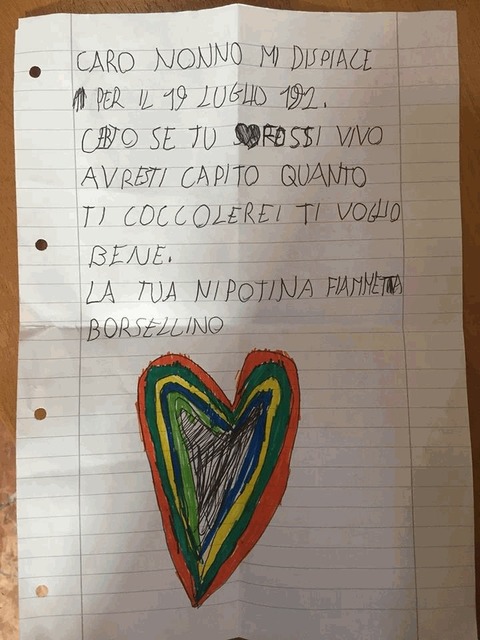 CARO NONNO MI DISPIACE
PER IL 19 LUGLIO 192.
CERTO SE TU FOSSI VIVO
AVRESTI CAPITO QUANTO
TI COCCOLEREI TI VOGLIO
BENE.
LA TUA NIPOTINA FIAMMETTA
BORSELLINO